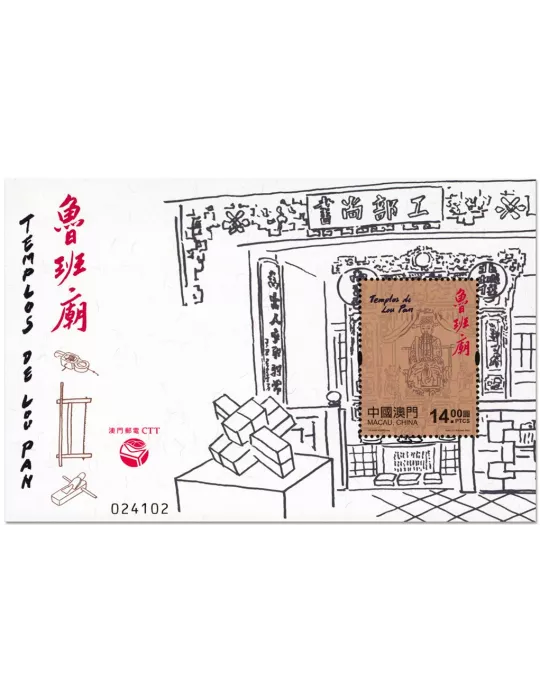 魯班廟
TEMPLOS DE LOU PAN
工部尚書
Templos de
Lou Pan
魯班廟
中國澳門
MACAU, CHINA
14.00圓
PTCS
澳門郵電 CTT
024102